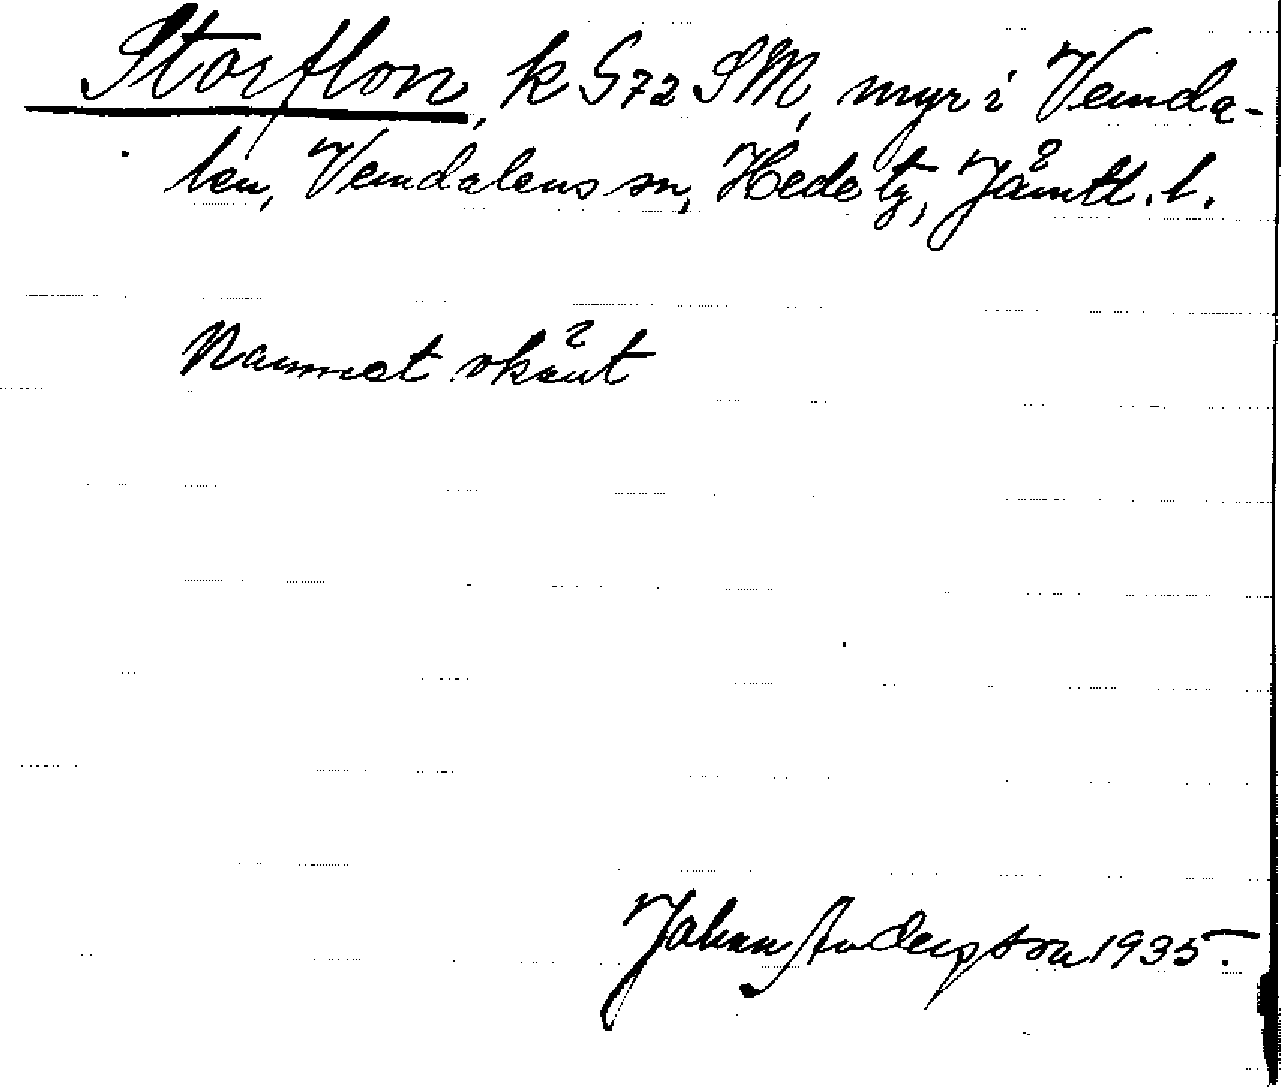 Storflon, k G72 SM, myr i Vemda-
len, Vemdalens sn, Hede tg, Jämtl. l.
Namnet okänt
Johan Anderson 1935.